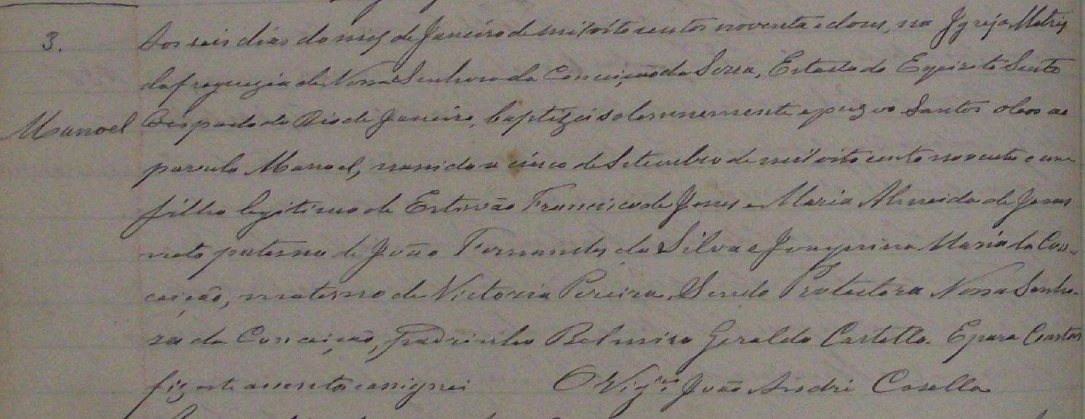 3.
Aos seis dias do mez de Janeiro de mil oito centos noventa e dous, na Igreja Matriz
da freguezia de Nossa Senhora da Conceição da Serra, Estado do Espirito Santo
Manoel
Bispado do Rio de Janeiro, baptizei solemnemente e puz os Santos oleos ao
parvulo Manoel, nascido a cinco de Setembro de mil oito cento noventa e um
filho legitimo de Estevão Francisco de Jesus e Maria Almeida de Jesus
neto paterno de João Fernandes da Silva e Joaquina Maria da Con-
ceição, materno de Victoria Pereira, Sendo Protectora Nossa Senho-
ra da Conceição, padrinho Belmiro Geraldo Castello. E para constar
fiz este assento e assignei O Vigro João André Casella